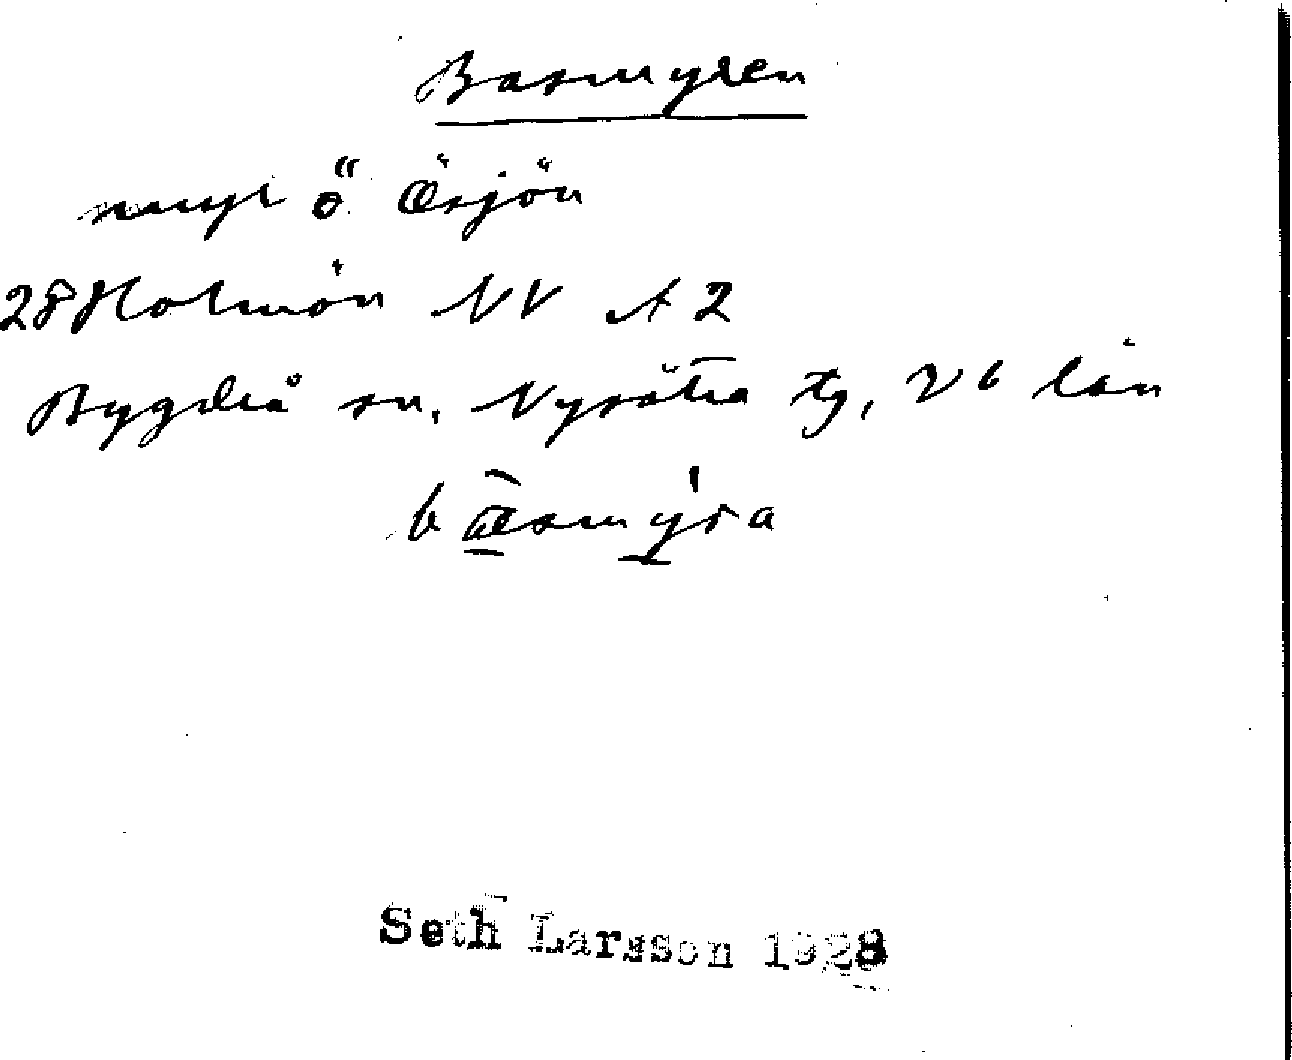 Basmyren
myr ö Ösjön
28 Holmön NV A2
Bygdeå sn, Nysätra tg, Vb län
Seth Larsson 1928